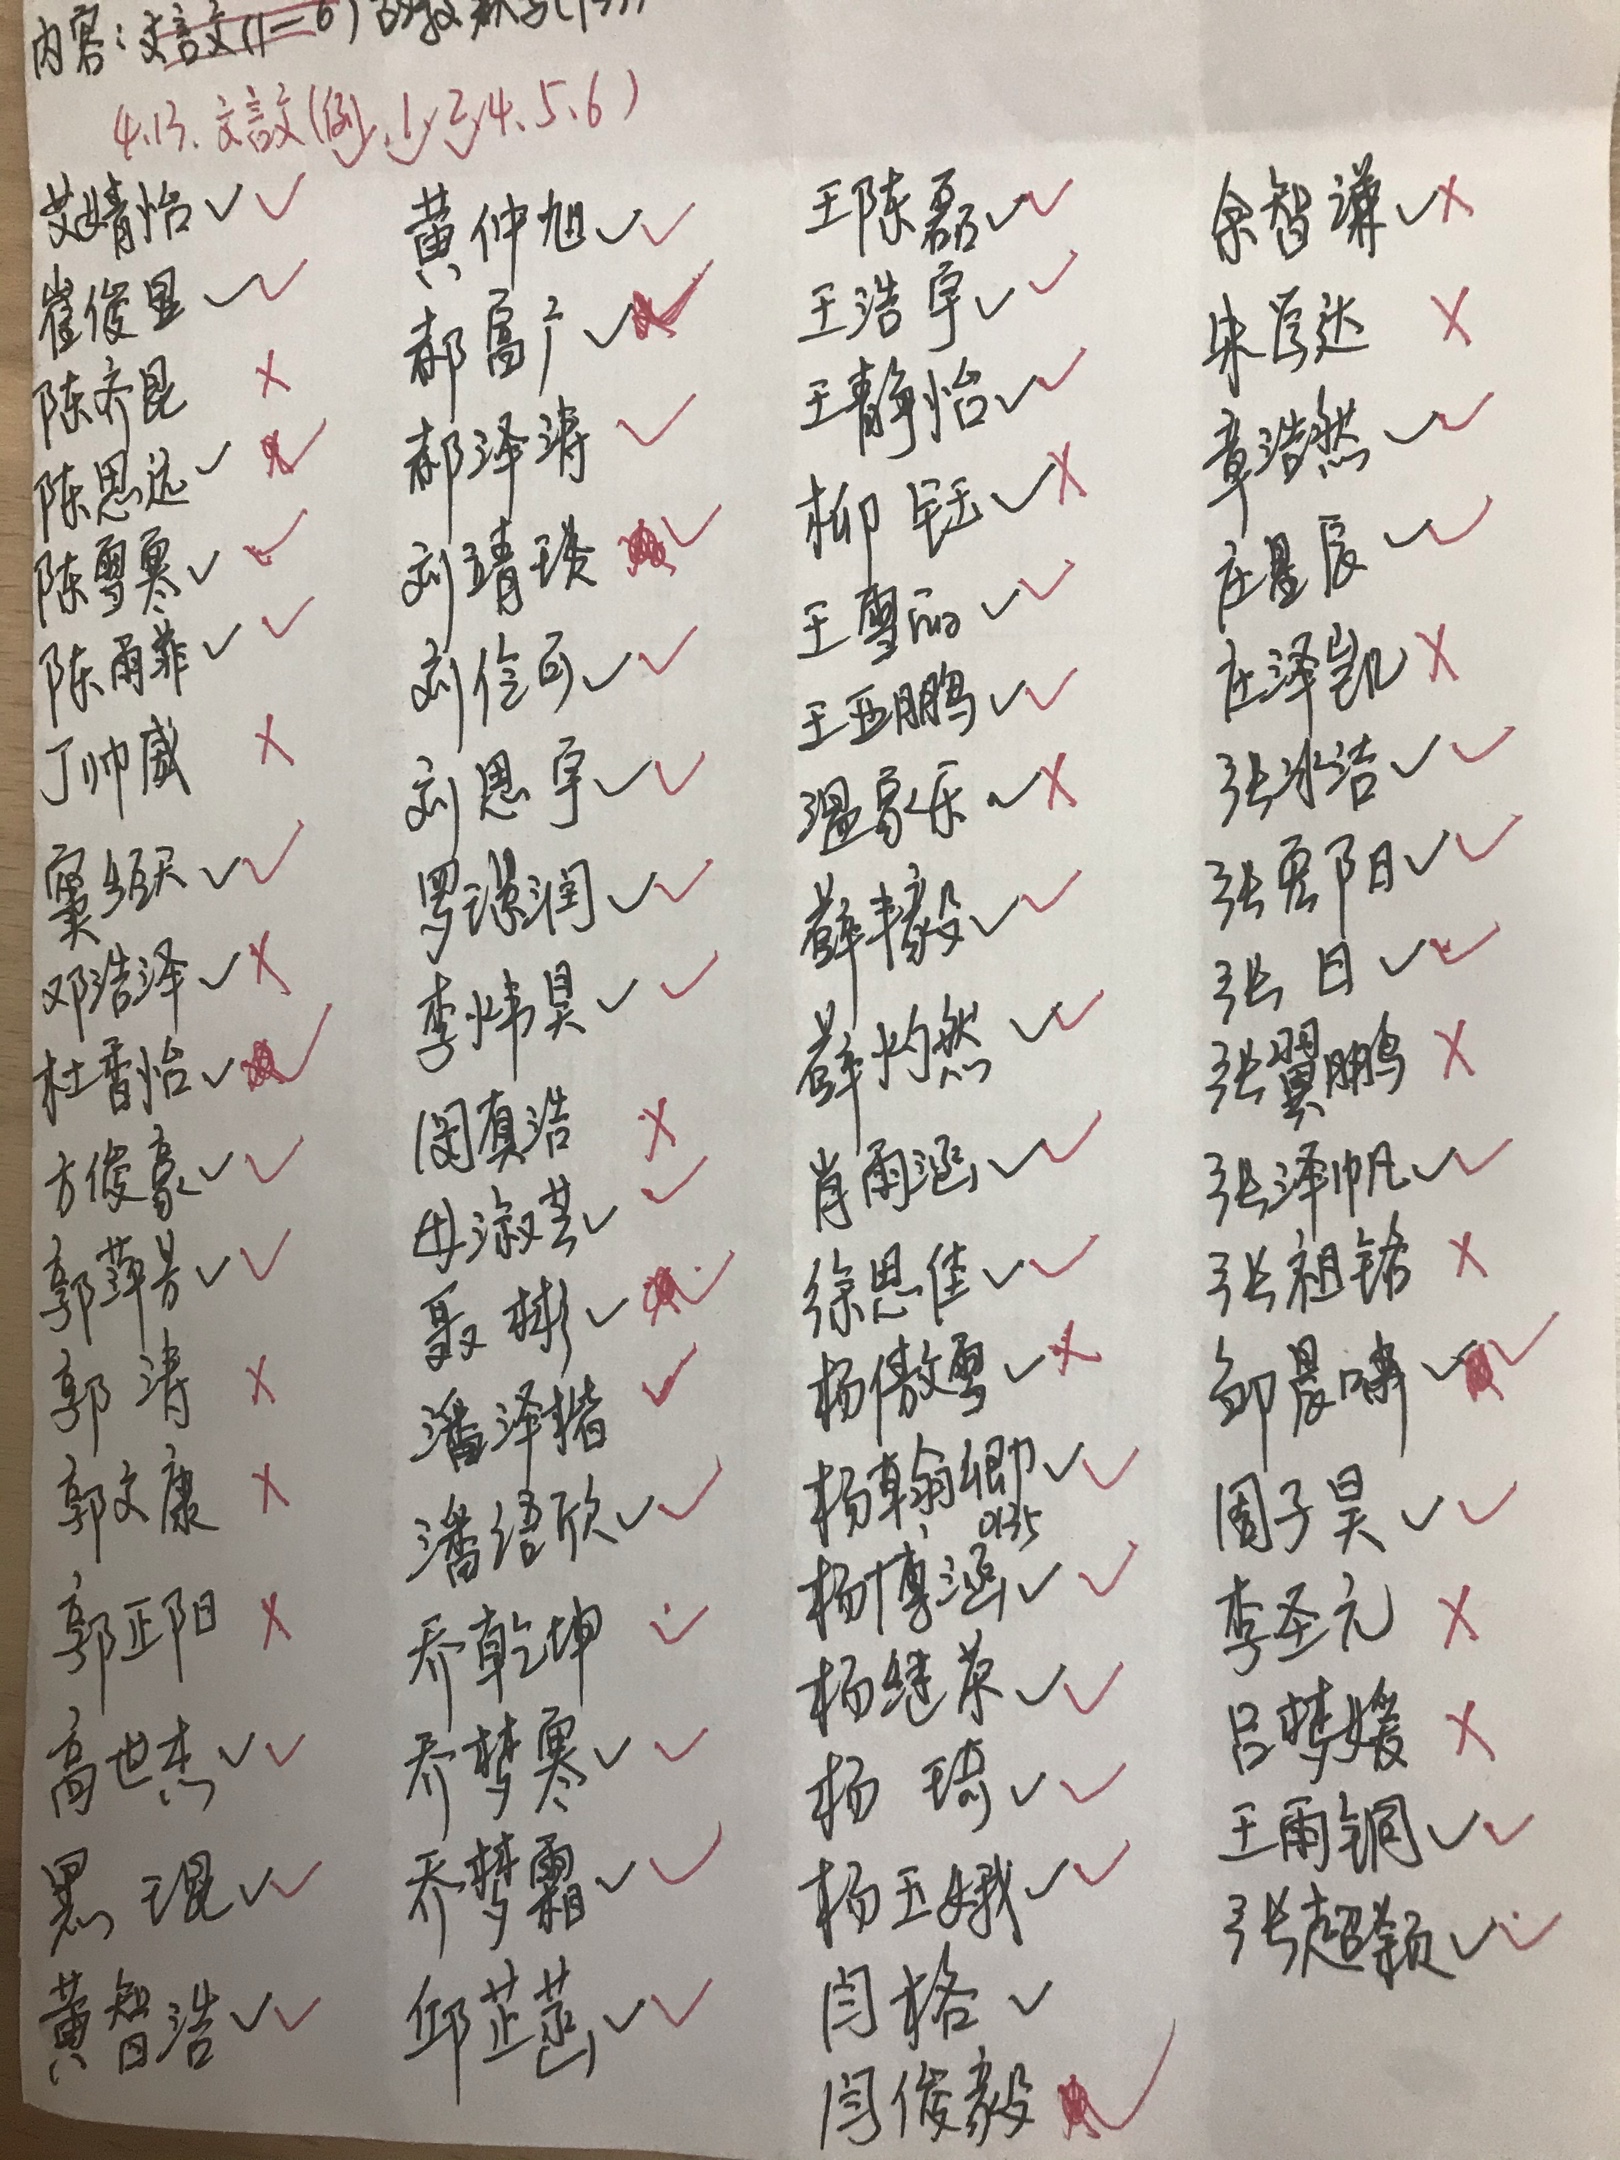 内容：文言文(1—6)
4.13.文言文(例、1、2、4、5、6)
艾婧怡✓✓
崔俊显✓✓
陈齐昆 ×
陈思远✓✓
陈雪寒✓✓
陈雨菲✓✓
丁帅威 ×
窦娅天✓✓
邓浩泽✓×
杜香怡✓✓
方俊豪✓✓
郭萍芳✓✓
郭涛 ×
郭文康 ×
郭正阳 ×
高世杰✓✓
黑琨✓✓
黄智浩✓✓
黄仲旭✓✓
郝富广✓✓
郝泽涛 ✓
刘靖琰 ✓
刘伦可✓✓
刘思宇✓✓
罗璟润✓✓
李炜昊✓✓
闵真浩 ×
毋淑芸✓✓
聂彬✓✓
潘泽楷 ✓
潘语欣✓✓
乔乾坤 ✓
乔梦寒✓✓
乔梦霜✓✓
邱芷菡✓✓
王陈磊✓✓
王浩宇✓✓
王静怡✓✓
柳钰✓×
王雪丽✓✓
王亚鹏✓✓
温家乐✓×
薛丰毅✓✓
薛灼然✓✓
肖雨涵✓✓
徐思佳✓✓
杨傲雪✓×
杨翰卿✓✓
0135
杨博涵✓✓
杨继荣✓✓
杨琦✓✓
杨玉娥✓✓
闫格✓
闫俊毅 ✓
余智谦✓×
朱彦达 ×
章浩然✓✓
庄星辰✓✓
庄泽凯 ×
张冰洁✓✓
张夏阳✓✓
张日✓✓
张翼鹏 ×
张泽帆✓✓
张祖铭 ×
邹晨啸✓✓
周子昊✓✓
李圣元 ×
吕梦媛 ×
王雨铜✓✓
张超颖✓✓